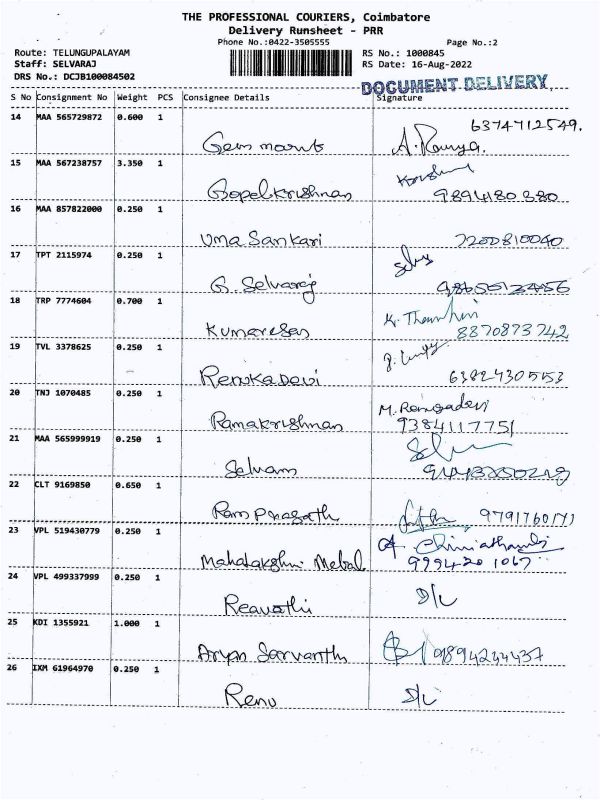 THE PROFESSIONAL COURIERS, Coimbatore
Delivery Runsheet - PRR
Phone No.:0422-3505555 Page No.:2
Route: TELUNGUPALAYAM RS No.: 1000845
Staff: SELVARAJ RS Date: 16-Aug-2022
DRS No.: DCJB100084502
DOCUMENT DELIVERY
S No Consignment No Weight PCS Consignee Details Signature
14 MAA 565729872 0.600 1 6374712549.
Gem A. Ramya.
15 MAA 567238757 3.350 1
Gopalkrishnan 9894180380
16 MAA 857822000 0.250 1
Uma Sankari 7200810040
17 TPT 2115974 0.250 1
G. Selvaraj 9865012456
18 TRP 7774604 0.700 1
Kumaresan 8870873742
19 TVL 3378625 0.250 1
Renuka Devi
20 TNJ 1070485 0.250 1 M. Rengadevi
Ramakrishnan 9384117751
21 MAA 565999919 0.250 1
Selvam
22 CLT 9169850 0.650 1
Ram Prasath
23 VPL 519430779 0.250 1
Mahalakshmi Metal
24 VPL 499337999 0.250 1
Reavathi D/L
25 KDI 1355921 1.000 1
Aryan Sarvanth 9894244437
26 IXM 61964970 0.250 1
Renu D/L